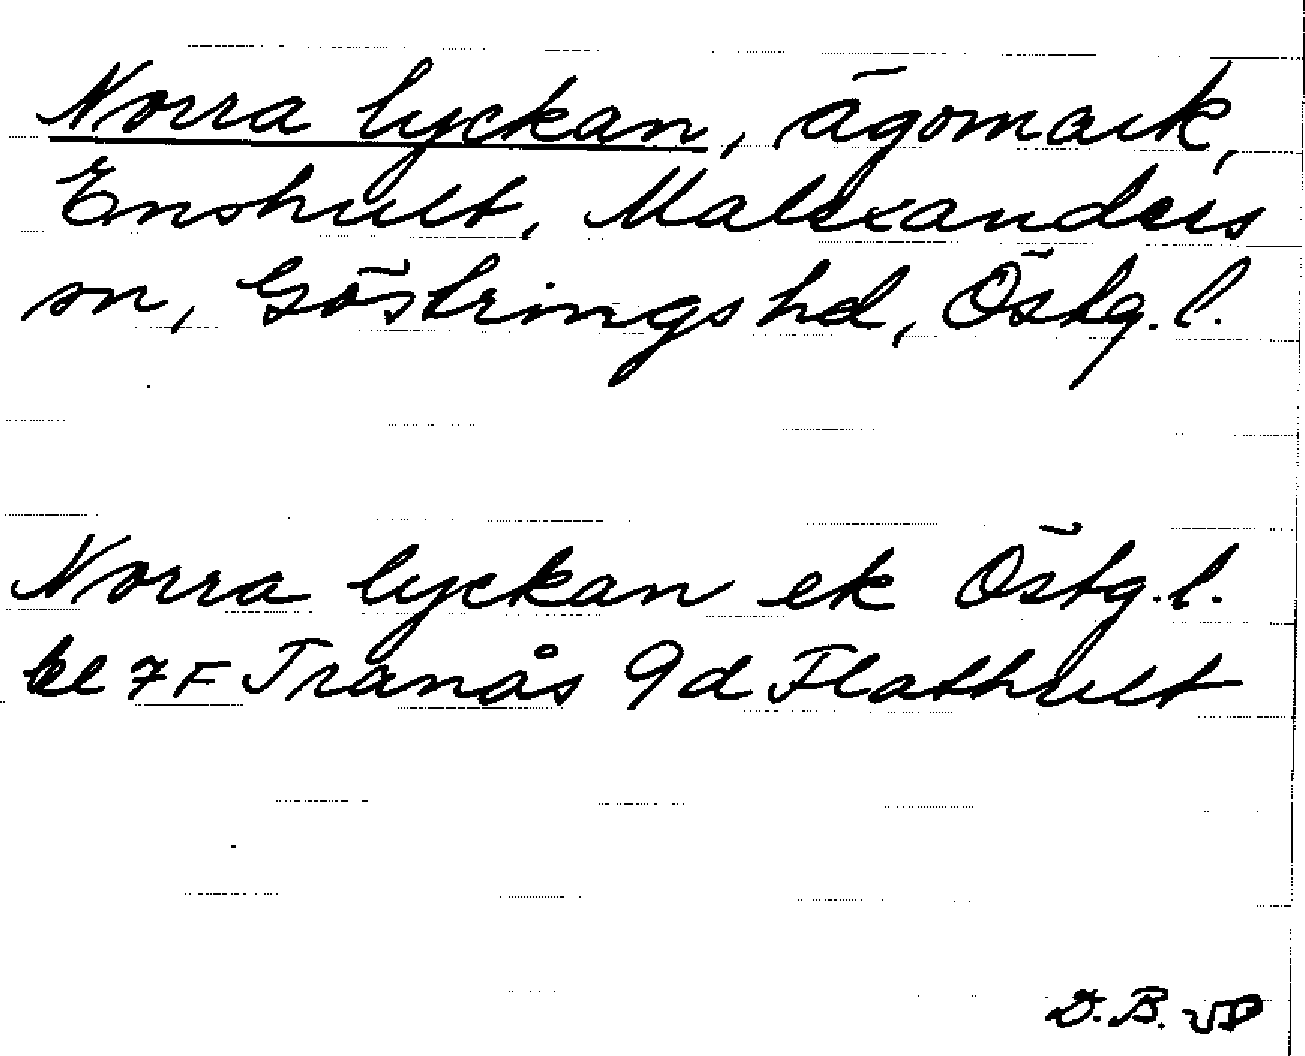 Norra lyckan, ägomark,
Enshult, Malexanders
sn, Göstrings hd, Östg. l.
Norra lyckan ek Östg. l.
bl 7F Tranås 9d Flathult
D. B.